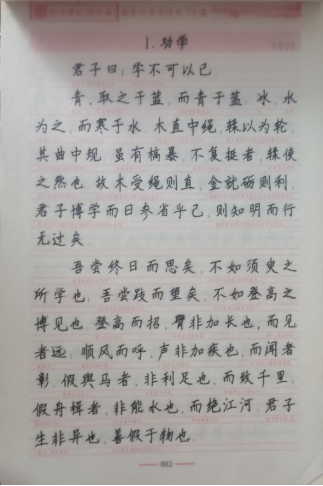 1.功学
君子曰:学不可以已.
青,取之于蓝,而青于蓝;冰,水
为之,而寒于水.木直中绳,輮以为轮,
其曲中规.虽有槁暴,不复挺者,輮使
之然也.故木受绳则直,金就砺则利,
君子博学而日参省乎己,则知明而行
无过矣.
吾尝终日而思矣,不如须臾之
所学也;吾尝跂而望矣,不如登高之
博见也.登高而招,臂非加长也,而见
者远;顺风而呼,声非加疾也,而闻者
彰.假舆马者,非利足也,而致千里;
假舟楫者,非能水也,而绝江河.君子
生非异也,善假于物也.
002